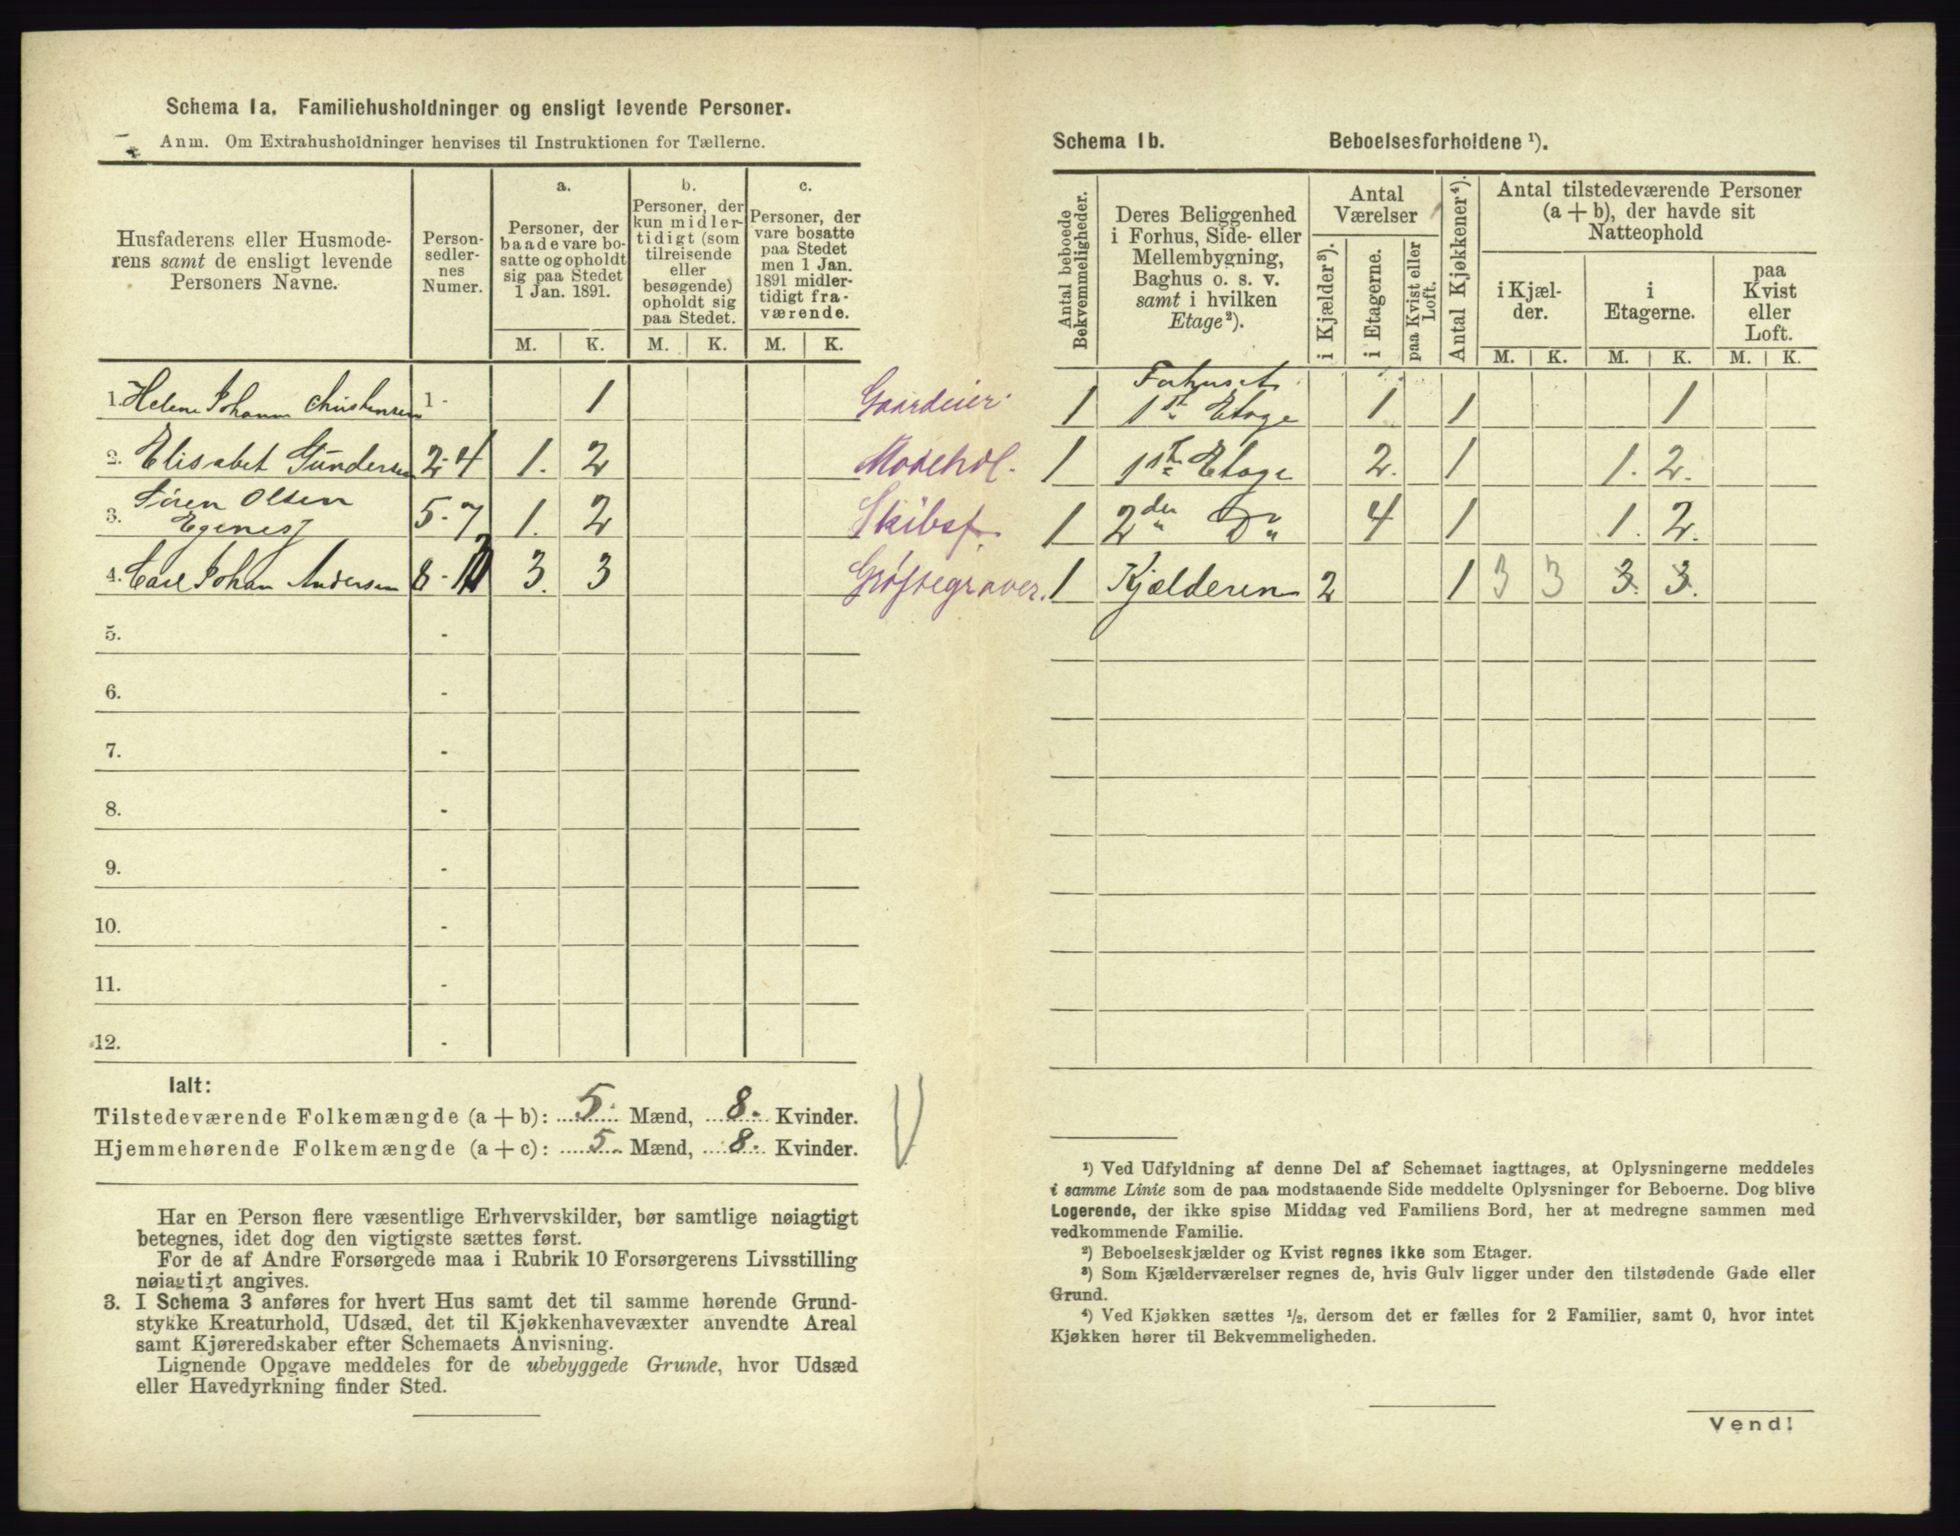 Schema 1a. Familiehusholdninger og ensligt levende Personer.
Anm. Om Extrahusholdninger henvises til Instruktionen for Tællerne.
Husfaderens eller Husmode-
rens samt de ensligt levende
Personers Navne.
Person-
sedler-
nes
Numer.
a.
Personer, der
baade vare bo-
satte og opholdt
sig paa Stedet
1 Jan. 1891.
b.
Personer, der
kun midler-
tidigt (som
tilreisende
eller
besøgende)
opholdt sig
paa Stedet.
c.
Personer, der
vare bosatte
paa Stedet
men 1 Jan.
1891 midler-
tidigt fra-
værende.
M. K. M. K. M. K.
1. Helene Johanne Christensen 1 - 1 Gaardeier.
2. Elisabet Gundersen 2-4 1. 2 Modehdl.
3. Søren Olsen
Egenes 5-7 1. 2 Skibsf.
4. Carl Johan Andersen 8- 3. 3 Grøftegraver.
5. -
6. -
7. -
8. -
9. -
10. -
11. -
12. -
Ialt:
Tilstedeværende Folkemængde (a + b): 5. Mænd, 8. Kvinder.
Hjemmehørende Folkemængde (a + c): 5. Mænd, 8. Kvinder.
Har en Person flere væsentlige Erhvervskilder, bør samtlige nøiagtigt
betegnes, idet dog den vigtigste sættes først.
For de af Andre Forsørgede maa i Rubrik 10 Forsørgerens Livsstilling
nøiagtigt angives.
3. I Schema 3 anføres for hvert Hus samt det til samme hørende Grund-
stykke Kreaturhold, Udsæd, det til Kjøkkenhavevæxter anvendte Areal
samt Kjøreredskaber efter Schemaets Anvisning.
Lignende Opgave meddeles for de ubebyggede Grunde, hvor Udsæd
eller Havedyrkning finder Sted.
Schema 1b. Beboelsesforholdene ¹).
Antal beboede
Bekvemmeligheder.
Deres Beliggenhed
i Forhus, Side- eller
Mellembygning,
Baghus o. s. v.
samt i hvilken
Etage²).
Antal
Værelser
i Kjælder³).
i Etagerne.
paa Kvist eller
Loft.
Antal Kjøkkener⁴).
Antal tilstedeværende Personer
(a + b), der havde sit
Natteophold
i Kjæl-
der.
i
Etagerne.
paa
Kvist
eller
Loft.
M. K. M. K. M. K.
Forhuset
1 1ste Etage 1 1 1
1 1ste Etage 2. 1 1. 2.
1 2den Do 4 1 1. 2.
1 Kjælderen 2 1 3 3 3. 3.
¹) Ved Udfyldning af denne Del af Schemaet iagttages, at Oplysningerne meddeles
i samme Linie som de paa modstaaende Side meddelte Oplysninger for Beboerne. Dog blive
Logerende, der ikke spise Middag ved Familiens Bord, her at medregne sammen med
vedkommende Familie.
²) Beboelseskjælder og Kvist regnes ikke som Etager.
³) Som Kjælderværelser regnes de, hvis Gulv ligger under den tilstødende Gade eller
Grund.
⁴) Ved Kjøkken sættes ½, dersom det er fælles for 2 Familier, samt 0, hvor intet
Kjøkken hører til Bekvemmeligheden.
Vend!